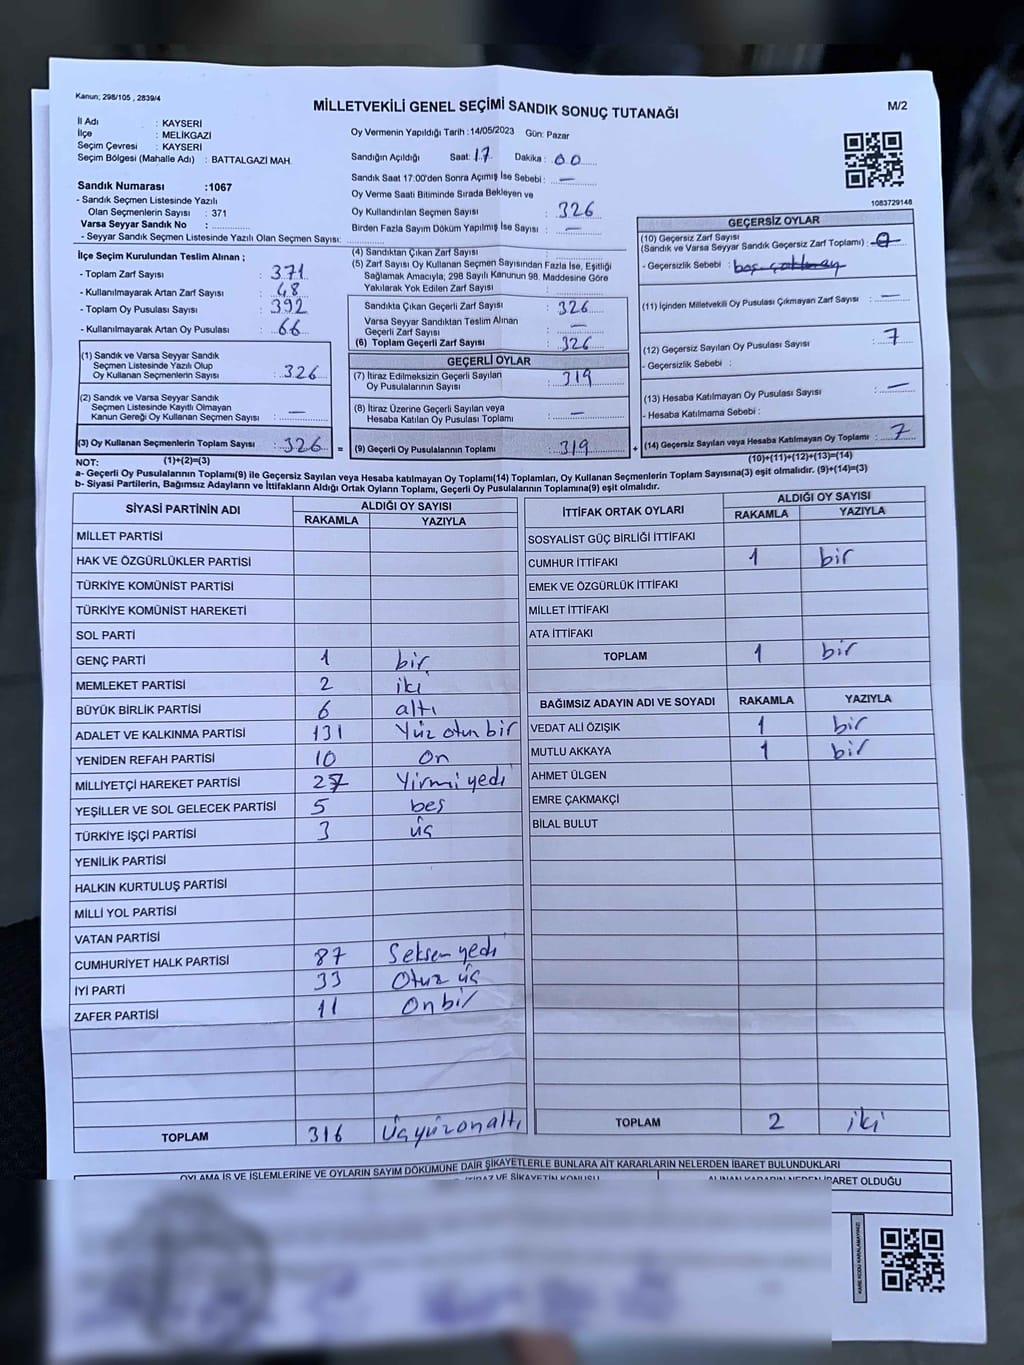 Kanun; 298/105 , 2839/4
MİLLETVEKİLİ GENEL SEÇİMİ SANDIK SONUÇ TUTANAĞI
M/2
İl Adı : KAYSERİ
İlçe : MELİKGAZİ
Seçim Çevresi : KAYSERİ
Seçim Bölgesi (Mahalle Adı) : BATTALGAZİ MAH.
Sandık Numarası :1067
- Sandık Seçmen Listesinde Yazılı
Olan Seçmenlerin Sayısı : 371
Varsa Seyyar Sandık No :
- Seyyar Sandık Seçmen Listesinde Yazılı Olan Seçmen Sayısı:
Oy Vermenin Yapıldığı Tarih :14/05/2023 Gün: Pazar
Sandığın Açıldığı Saat: 17 Dakika : 00
Sandık Saat 17.00'den Sonra Açımış İse Sebebi : —
Oy Verme Saati Bitiminde Sırada Bekleyen ve
Oy Kullandırılan Seçmen Sayısı : 326
Birden Fazla Sayım Döküm Yapılmış İse Sayısı : —
1083729148
İlçe Seçim Kurulundan Teslim Alınan ;
- Toplam Zarf Sayısı : 371
- Kullanılmayarak Artan Zarf Sayısı : 48
- Toplam Oy Pusulası Sayısı : 392
- Kullanılmayarak Artan Oy Pusulası : 66
(1) Sandık ve Varsa Seyyar Sandık
Seçmen Listesinde Yazılı Olup
Oy Kullanan Seçmenlerin Sayısı : 326
(2) Sandık ve Varsa Seyyar Sandık
Seçmen Listesinde Kayıtlı Olmayan
Kanun Gereği Oy Kullanan Seçmen Sayısı : —
(3) Oy Kullanan Seçmenlerin Toplam Sayısı : 326 =
(1)+(2)=(3)
(4) Sandıktan Çıkan Zarf Sayısı :
(5) Zarf Sayısı Oy Kullanan Seçmen Sayısından Fazla İse, Eşitliği
Sağlamak Amacıyla; 298 Sayılı Kanunun 98. Maddesine Göre
Yakılarak Yok Edilen Zarf Sayısı :
Sandıkta Çıkan Geçerli Zarf Sayısı : 326
Varsa Seyyar Sandıktan Teslim Alınan
Geçerli Zarf Sayısı : —
(6) Toplam Geçerli Zarf Sayısı : 326
GEÇERLİ OYLAR
(7) İtiraz Edilmeksizin Geçerli Sayılan
Oy Pusulalarının Sayısı : 319
(8) İtiraz Üzerine Geçerli Sayılan veya
Hesaba Katılan Oy Pusulası Toplamı : —
(9) Geçerli Oy Pusulalarının Toplamı : 319 +
GEÇERSİZ OYLAR
(10) Geçersiz Zarf Sayısı
(Sandık ve Varsa Seyyar Sandık Geçersiz Zarf Toplamı) :
- Geçersizlik Sebebi :
(11) İçinden Milletvekili Oy Pusulası Çıkmayan Zarf Sayısı : —
(12) Geçersiz Sayılan Oy Pusulası Sayısı : 7
- Geçersizlik Sebebi :
(13) Hesaba Katılmayan Oy Pusulası Sayısı : —
- Hesaba Katılmama Sebebi :
(14) Geçersiz Sayılan veya Hesaba Katılmayan Oy Toplamı : 7
(10)+(11)+(12)+(13)=(14)
NOT:
a- Geçerli Oy Pusulalarının Toplamı(9) ile Geçersiz Sayılan veya Hesaba katılmayan Oy Toplamı(14) Toplamları, Oy Kullanan Seçmenlerin Toplam Sayısına(3) eşit olmalıdır. (9)+(14)=(3)
b- Siyasi Partilerin, Bağımsız Adayların ve İttifakların Aldığı Ortak Oyların Toplamı, Geçerli Oy Pusulalarının Toplamına(9) eşit olmalıdır.
SİYASİ PARTİNİN ADI ALDIĞI OY SAYISI
RAKAMLA YAZIYLA
MİLLET PARTİSİ
HAK VE ÖZGÜRLÜKLER PARTİSİ
TÜRKİYE KOMÜNİST PARTİSİ
TÜRKİYE KOMÜNİST HAREKETİ
SOL PARTİ
GENÇ PARTİ 1 bir
MEMLEKET PARTİSİ 2 iki
BÜYÜK BİRLİK PARTİSİ 6 altı
ADALET VE KALKINMA PARTİSİ 131 Yüz otuz bir
YENİDEN REFAH PARTİSİ 10 On
MİLLİYETÇİ HAREKET PARTİSİ 27 Yirmi yedi
YEŞİLLER VE SOL GELECEK PARTİSİ 5 beş
TÜRKİYE İŞÇİ PARTİSİ 3 üç
YENİLİK PARTİSİ
HALKIN KURTULUŞ PARTİSİ
MİLLİ YOL PARTİSİ
VATAN PARTİSİ
CUMHURİYET HALK PARTİSİ 87 Seksen yedi
İYİ PARTİ 33 Otuz üç
ZAFER PARTİSİ 11 On bir
TOPLAM 316 Üçyüzonaltı
İTTİFAK ORTAK OYLARI ALDIĞI OY SAYISI
RAKAMLA YAZIYLA
SOSYALİST GÜÇ BİRLİĞİ İTTİFAKI
CUMHUR İTTİFAKI 1 bir
EMEK VE ÖZGÜRLÜK İTTİFAKI
MİLLET İTTİFAKI
ATA İTTİFAKI
TOPLAM 1 bir
BAĞIMSIZ ADAYIN ADI VE SOYADI RAKAMLA YAZIYLA
VEDAT ALİ ÖZIŞIK 1 bir
MUTLU AKKAYA 1 bir
AHMET ÜLGEN
EMRE ÇAKMAKÇİ
BİLAL BULUT
TOPLAM 2 iki
OYLAMA İŞ VE İŞLEMLERİNE VE OYLARIN SAYIM DÖKÜMÜNE DAİR ŞİKAYETLERLE BUNLARA AİT KARARLARIN NELERDEN İBARET BULUNDUKLARI
İTİRAZ VE ŞİKAYETİN KONUSU
ALINAN KARARIN NEDEN İBARET OLDUĞU
KARE KODU KARALAMAYINIZ!